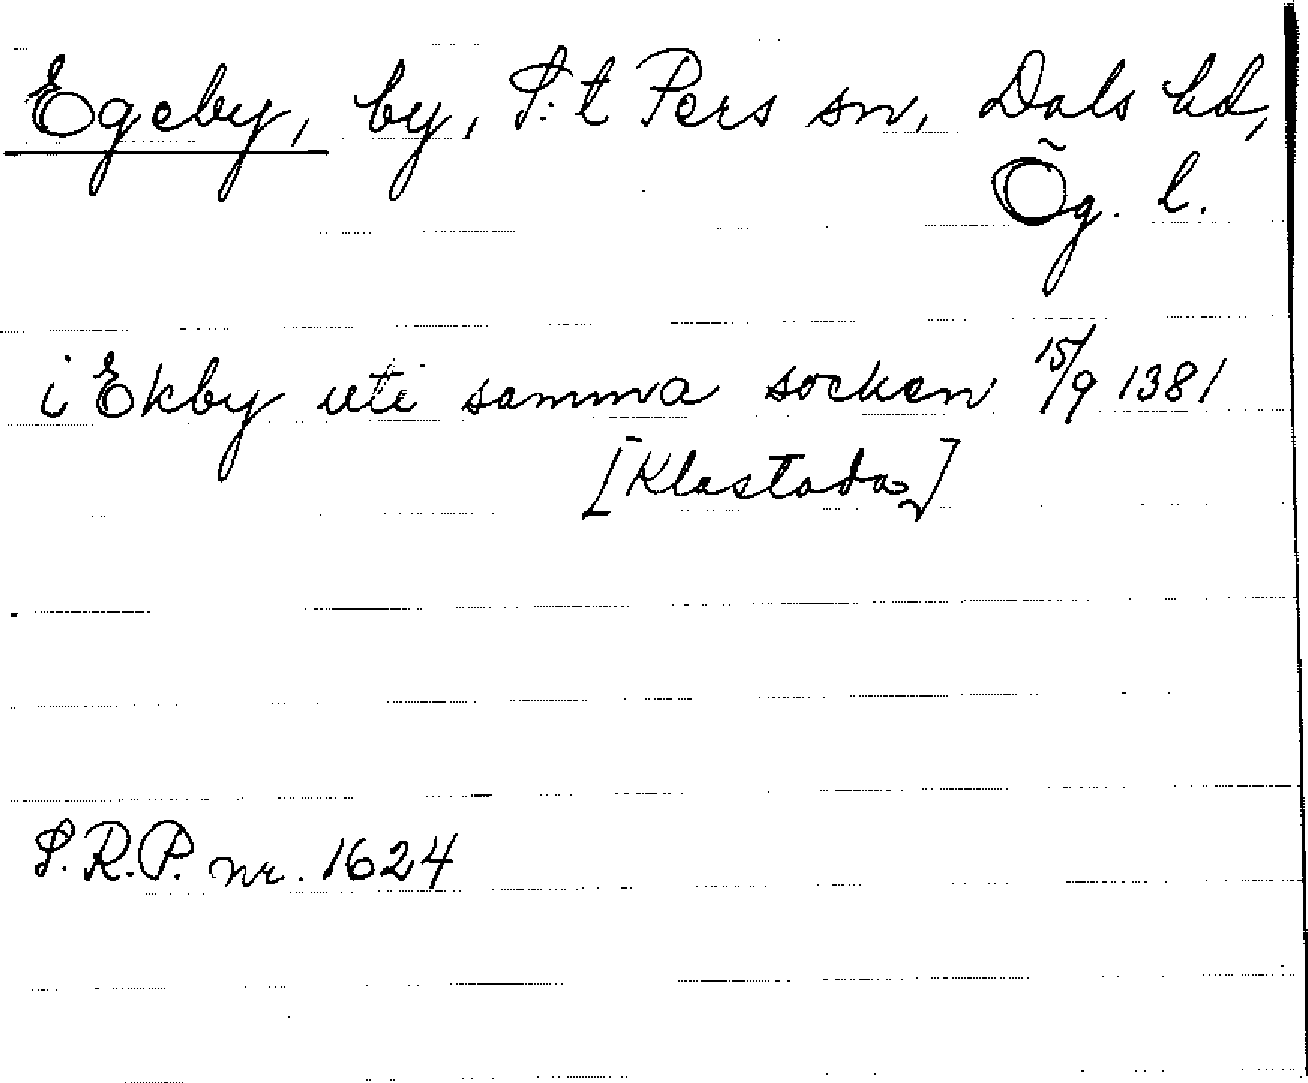 Egeby, by, S:t Pers sn, Dals hd,
Ög. l.
i Ekby uti samma socken 15/9 1381
[Klastada]
S.R.P. nr. 1624